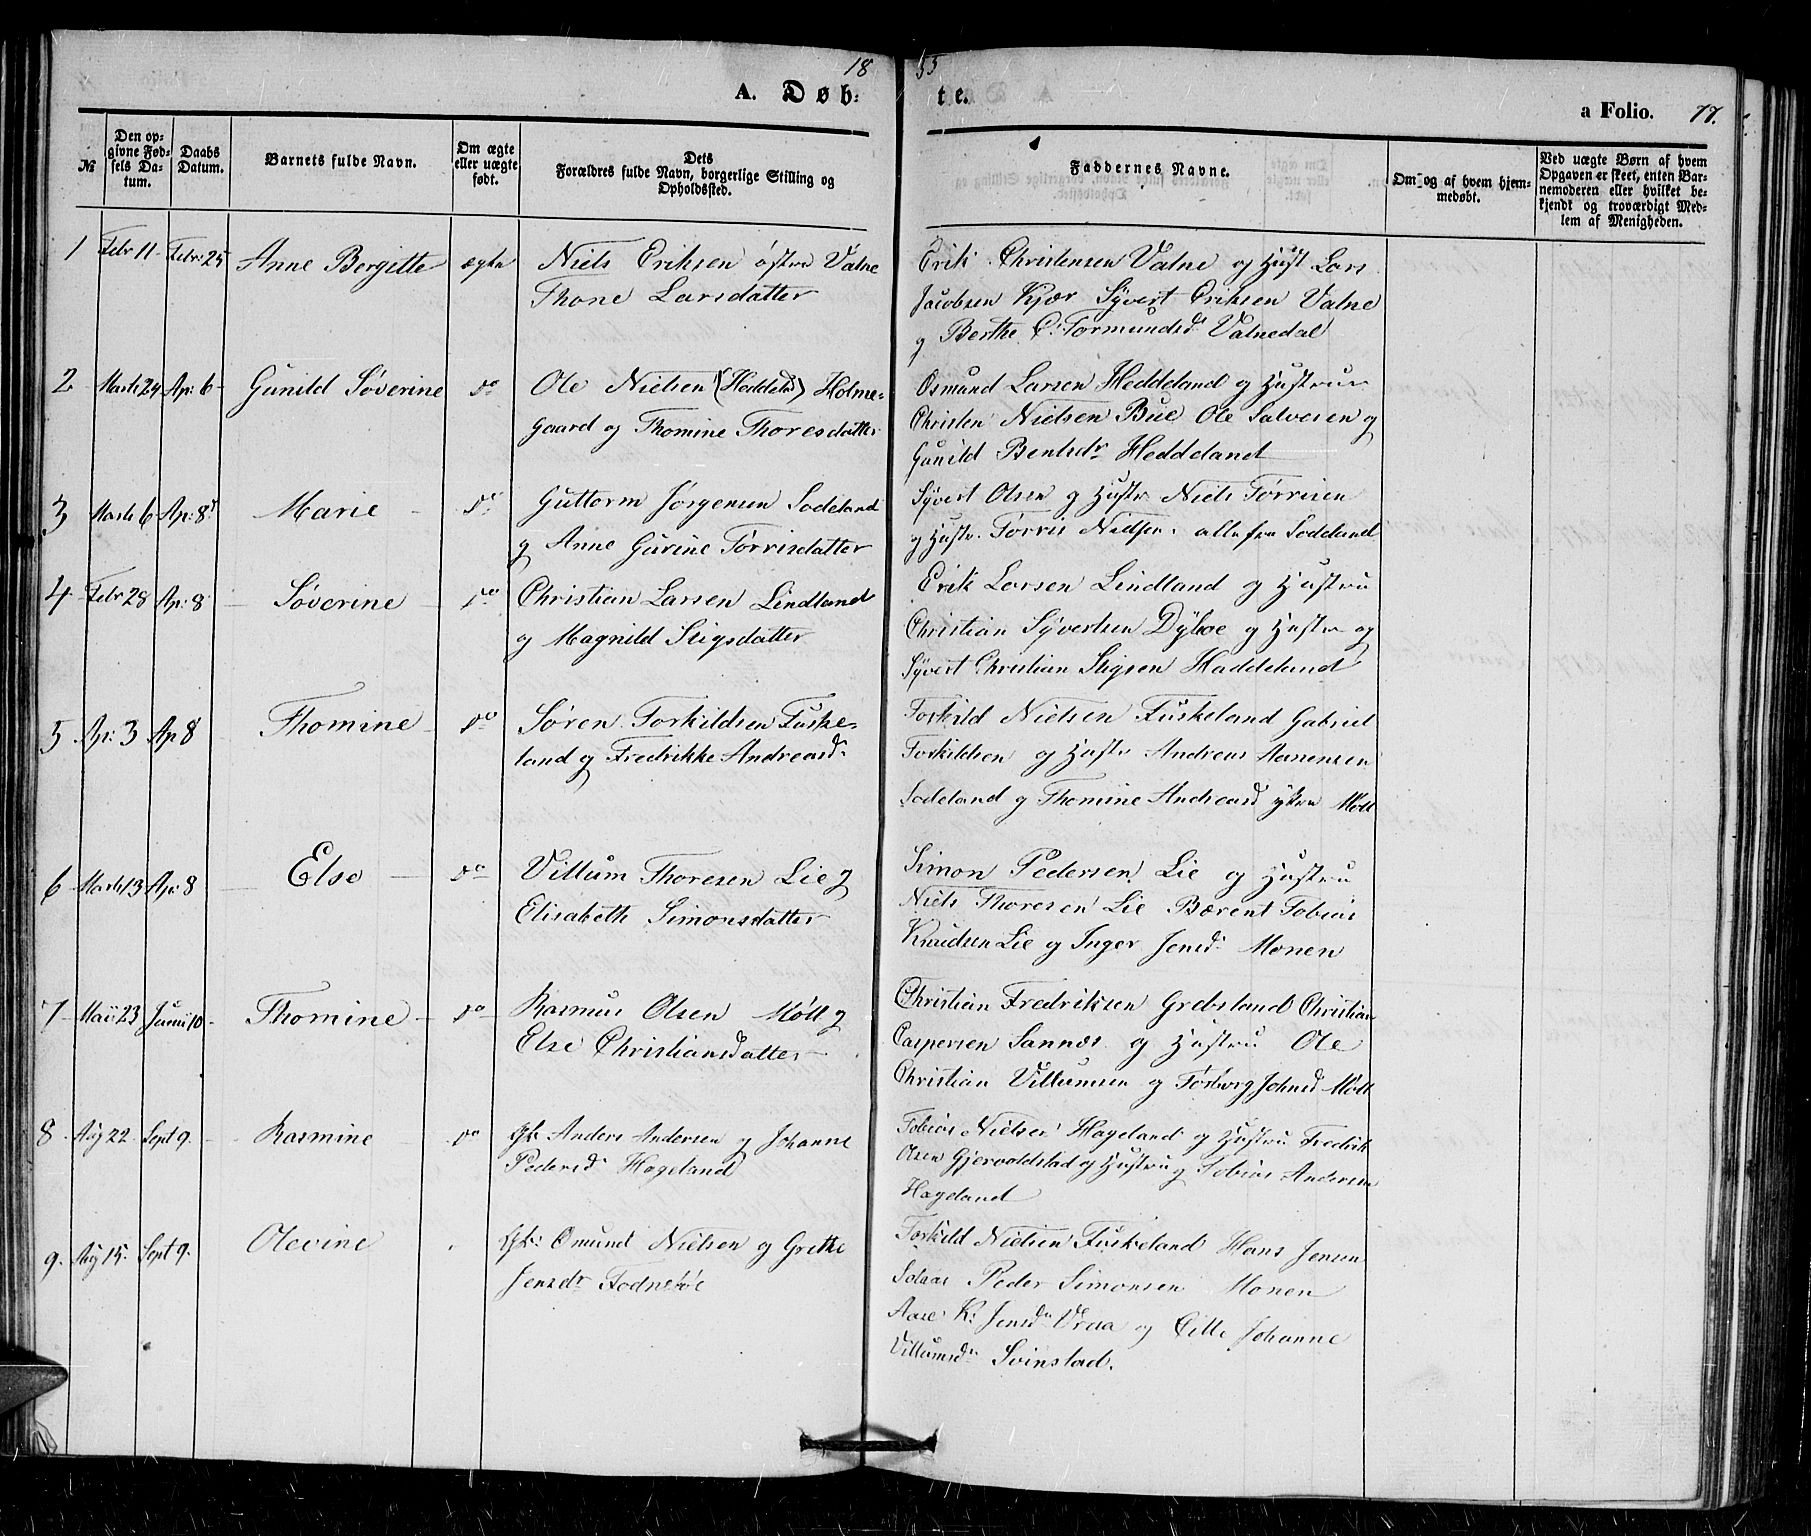 18 55
A. Døb: te.
a Folio. 77.
№
Den opgivne Fødsels Datum.
Daabs Datum.
Barnets fulde Navn.
Om ægte eller uægte født.
Dets Forældres fulde Navn, borgerlige Stilling og Opholdssted.
Faddernes Navne.
Om og af hvem hjemmedøbt.
Ved uægte Børn af hvem Opgaven er skeet, enten Barnemoderen eller hvilket bekjendt og troværdigt Medlem af Menigheden.
1 Febr 11 Febr: 25 Anne Bergitte ægte Niels Eriksen østre Valne
Thone Larsdatter
Erik Christensen Valne og Hust Lars
Jacobsen Kjær Syvert Eriksen Valne
og Berthe C: Tormundsd Valnedal
2 Marts 24 Ap: 6 Gunild Søverine do Ole Nielsen (Heddeld) Holme-
gaard og Thomine Thoresdatter
Osmund Larsen Heddeland og Hustru
Christen Nielsen Bue Ole Salvesen og
Gunild Bentsdr Heddeland
3 Marts 6 Ap: 8 Marie do Guttorm Jørgensen Sodeland
og Anne Gurine Torrisdatter
Syvert Olsen og Hustr Niels Torrisen
og Hustr. Torris Nielsen alle fra Sodeland
4 Febr 28 Ap: 8 Søverine do Christian Larsen Lindland
og Magnild Stigsdatter
Erik Larsen Lindland og Hustru
Christian Syvertsen Dyboe og Hustr og
Syvert Christian Stigsen Haddeland
5 Ap: 3 Ap 8 Thomine do Søren Torkildsen Fuske-
land og Fredrikke Andreasd
Torkild Nielsen Fuskeland Gabriel
Torkildsen og Hustr Andreas Aanensen
Sodeland og Thomine Andreasd ytre Møll
6 Marts 13 Ap: 8 Else do Villum Thoresen Lie og
Elisabeth Simonsdatter
Simon Pedersen Lie og Hustru
Niels Thoresen Lie Bærent Tobias
Knudsen Lie og Inger Jensd Monen
7 Maii 23 Junii 10 Thomine do Rasmus Olsen Møll og
Else Christiansdatter
Christian Fredriksen Grebsland Christian
Caspersen Sannes og Hustru Ole
Christian Villumsen og Torborg Johnsd Møll
8 Aug 22 Sept 9. Rasmine do Gb Anders Andersen og Johanne
Pedersd Hageland
Tobias Nielsen Hageland og Hustru Fredrik
Olsen Gjervoldstad og Hustru og Tobias Andersen
Hageland
9. Aug 15. Sept 9. Olevine Gb: Omund Nielsen og Grethe
Jensdr
Torkild Nielsen Fuskeland Hans Jensen
Solaas Peder Simonsen Monen
Aase K: Jensdr Vraa og Cille Johanne
Villumsdr Svinstad.